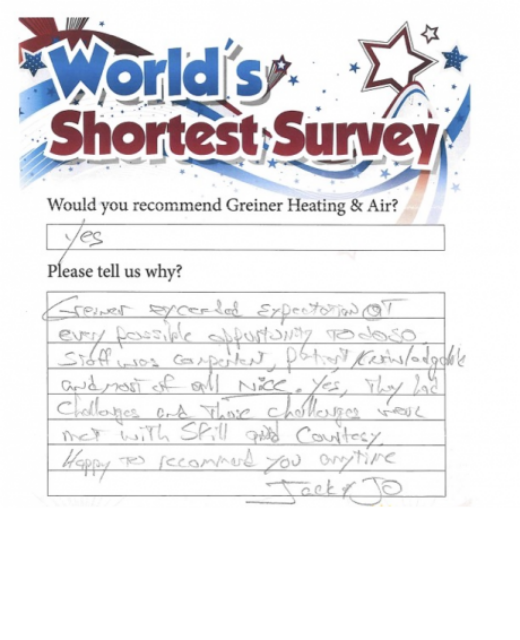 World's
Shortest Survey
Would you recommend Greiner Heating & Air?
yes
Please tell us why?
Greiner exceeded expectation @
every possible opportunity TO do so
Staff was competent, patient Knowledgable
and most of all NICE. Yes, They had
Challenges and Those challenges were
met with Skill and Courtesy.
Happy TO recommend you anytime
Jack & JO